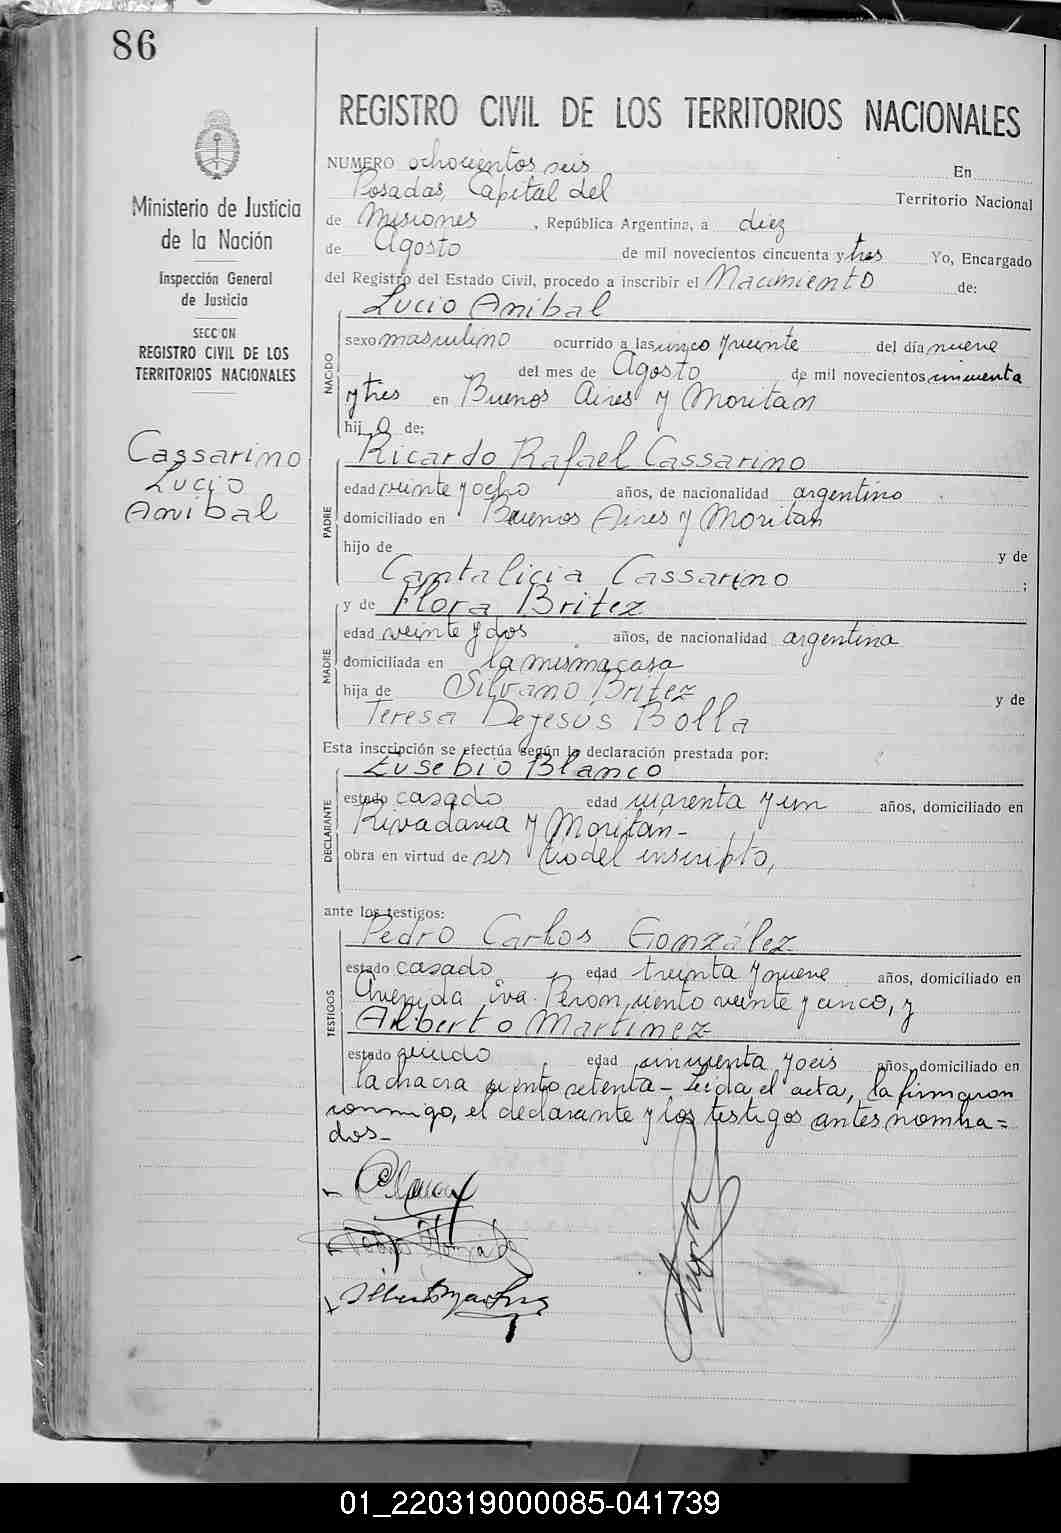 86
REGISTRO CIVIL DE LOS TERRITORIOS NACIONALES
NUMERO ochocientos seis En
Posadas, Capital del Territorio Nacional
de Misiones , República Argentina, a diez
de Agosto de mil novecientos cincuenta y tres Yo, Encargado
del Registro del Estado Civil, procedo a inscribir el Nacimiento de:
Ministerio de Justicia
de la Nación
Inspección General
de Justicia
SECCION
REGISTRO CIVIL DE LOS
TERRITORIOS NACIONALES
Cassarino
Lucio
Anibal
NACIDO
Lucio Anibal
sexo masculino ocurrido a las cinco y veinte del día nueve
del mes de Agosto de mil novecientos cincuenta
y tres en Buenos Aires y Moritan
hij o de:
PADRE
Ricardo Rafael Cassarino
edad veinte y ocho años, de nacionalidad argentino
domiciliado en Buenos Aires y Moritan
hijo de y de
Cantalicia Cassarino ;
MADRE
y de Flora Britez
edad veinte y dos años, de nacionalidad argentina
domiciliada en la misma casa
hija de Silvano Britez y de
Teresa Dejesús Bolla
Esta inscripción se efectúa según la declaración prestada por:
DECLARANTE
Eusebio Blanco
estado casado edad cuarenta y un años, domiciliado en
Rivadavia y Moritan-
obra en virtud de ser tio del inscripto,
ante los testigos:
TESTIGOS
Pedro Carlos González
estado casado edad treinta y nueve años, domiciliado en
Avenida Eva Peron, ciento veinte y cinco, y
Alberto Martinez
estado viudo edad cincuenta y seis años, domiciliado en
la chacra ciento setenta - Leida el acta, la firmaron
conmigo, el declarante y los testigos antes nombra=
dos-
01_220319000085-041739